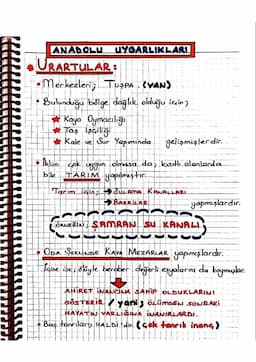 ANADOLU UYGARLIKLARI
URARTULAR:
• Merkezleri; TUŞPA. (VAN)
• Bulunduğu bölge dağlık olduğu için;
★ Kaya Oymacılığı
★ Taş İşçiliği
★ Kale ve Sur Yapımında gelişmişlerdir.
• İklim çok uygun olmasa da; kısıtlı alanlarda
bile TARIM yapılmıştır.
Tarım için; → SULAMA KANALLARI
→ BARAJLAR yapmışlardır.
ÖRNEĞİN; ŞAMRAN SU KANALI
• ODA ŞEKLİNDE KAYA MEZARLAR yapmışlardır.
İçine ise; ölüyle beraber değerli eşyalarını da koymuşlar.
AHİRET İNANCINA SAHİP OLDUKLARINI
GÖSTERİR. / yani; ÖLÜMDEN SONRAKİ
HAYATIN VARLIĞINA İNANIRLARDI.
• Baş tanrıları; HALDİ'dir. (çok tanrılı inanç)